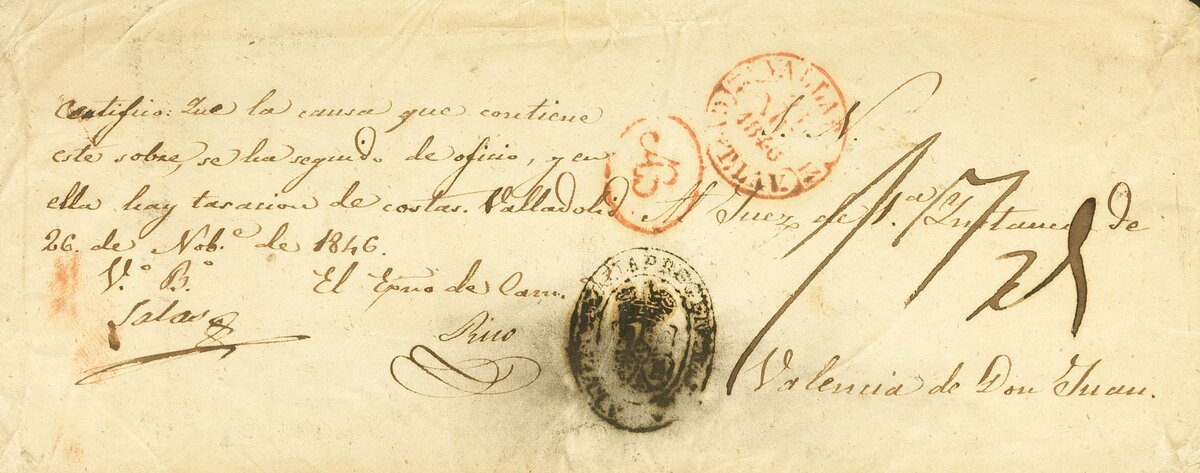 Certifico: Que la causa que contiene
este sobre, se ha seguido de oficio, y en
ella hay tasacion de costas. Valladolid
26. de Nob.e de 1846.
V.o B.o
Salas
El Esno de Cam.
Rico
S. N.
Al Juez de 1.a Instancia de
Valencia de Don Juan.
1846